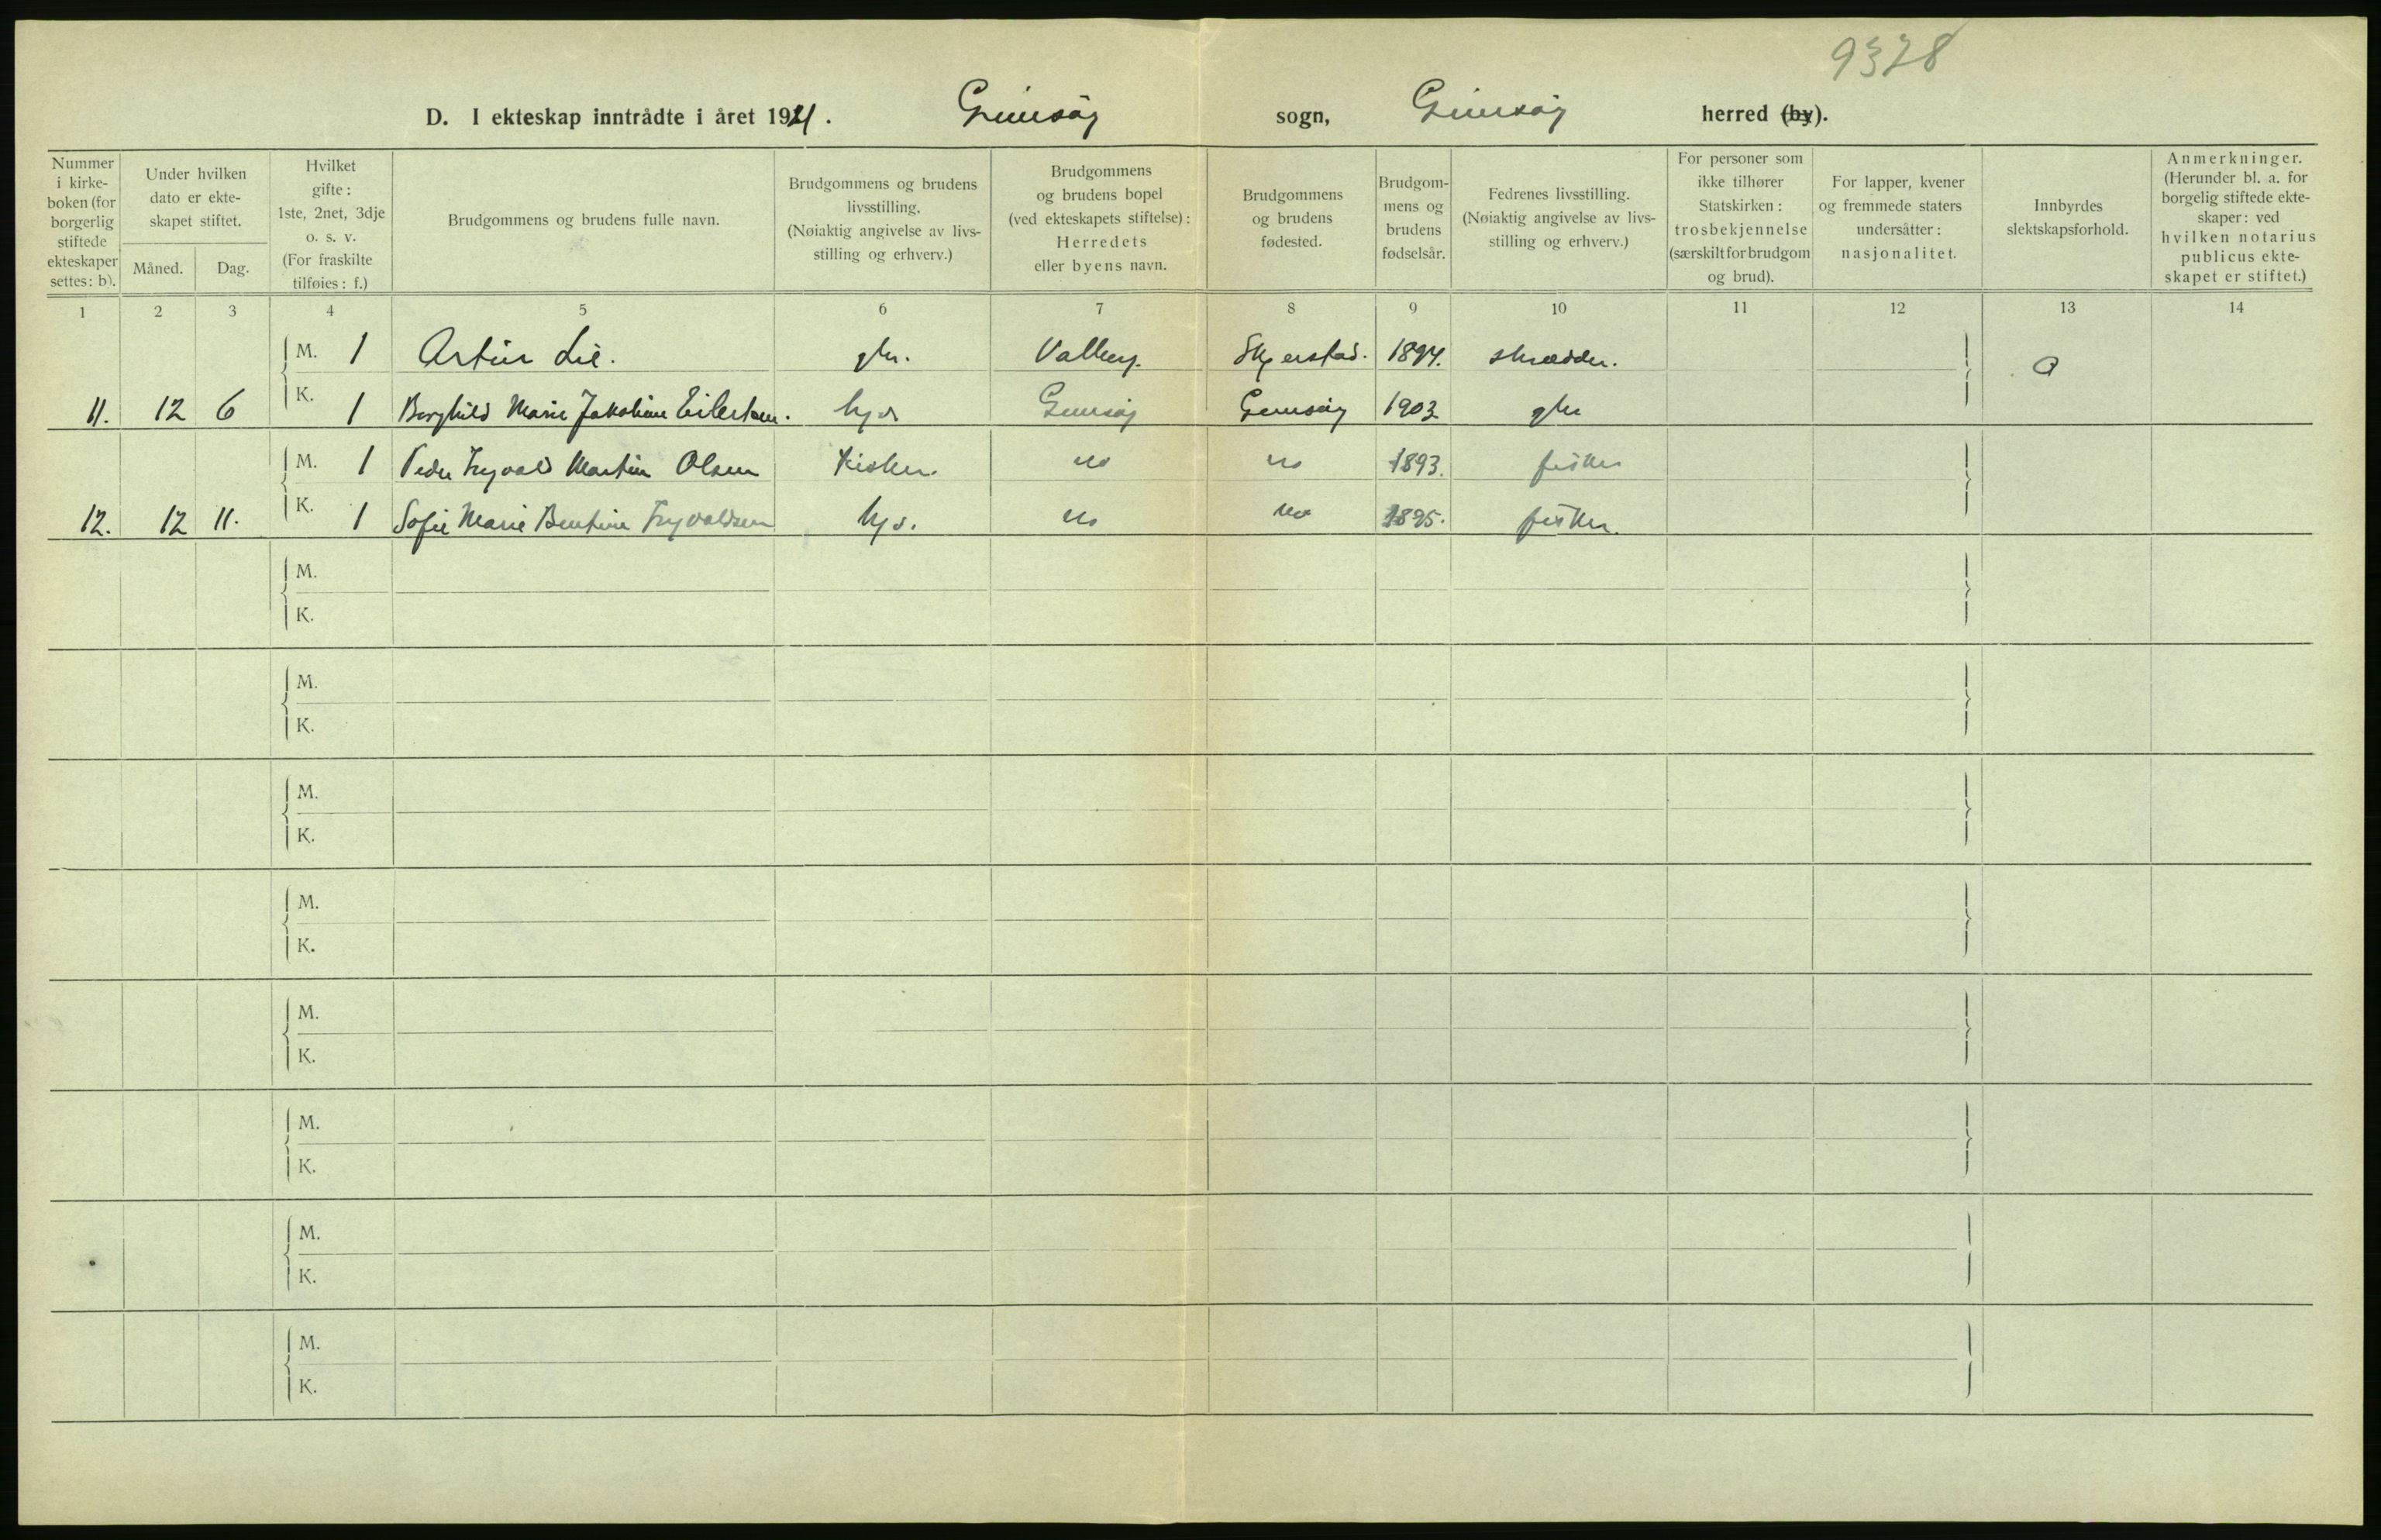 9328
D. I ekteskap inntrådte i året 1921. Gimsøy sogn, Gimsøy herred (by).
Nummer i kirkeboken (for borgerlig stiftede ekteskaper settes: b).
Under hvilken dato er ekteskapet stiftet.
Måned. Dag.
Hvilket gifte: 1ste, 2net, 3dje o. s. v. (For fraskilte tilføies: f.)
Brudgommens og brudens fulle navn.
Brudgommens og brudens livsstilling. (Nøiaktig angivelse av livsstilling og erhverv.)
Brudgommens og brudens bopel (ved ekteskapets stiftelse): Herredets eller byens navn.
Brudgommens og brudens fødested.
Brudgommens og brudens fødselsår.
Fedrenes livsstilling. (Nøiaktig angivelse av livsstilling og erhverv.)
For personer som ikke tilhører Statskirken: trosbekjennelse (særskilt for brudgom og brud).
For lapper, kvener og fremmede staters undersåtter: nasjonalitet.
Innbyrdes slektskapsforhold.
Anmerkninger. (Herunder bl. a. for borgelig stiftede ekteskaper: ved hvilken notarius publicus ekteskapet er stiftet.)
1 2 3 4 5 6 7 8 9 10 11 12 13 14
M. 1 Artur Lie. gbr. Valberg. Skjerstad. 1894. skrædder. 0
11. 12 6 K. 1 Borghild Marie Jakobine Eilertsen. hjv. Gimsøy Gimsøy 1903 gbr
M. 1 Peder Trygvald Martin Olsen Fisker. do do 1893. fisker
12. 12 11. K. 1 Sofie Marie Bentine Trygvaldsen hjv. do do 1895. fisker.
M.
K.
M.
K.
M.
K.
M.
K.
M.
K.
M.
K.
M.
K.
M.
K.